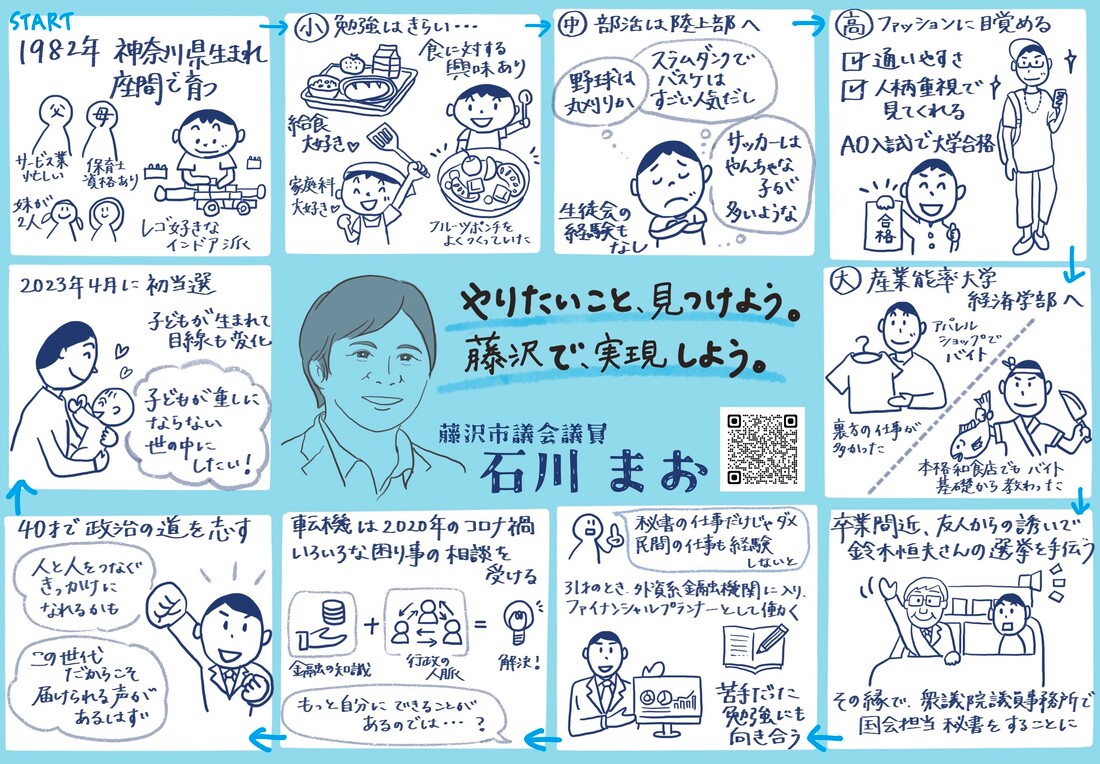 START
1982年 神奈川県生まれ
座間で育つ
父
母
サービス業
忙しい
保育士
資格あり
妹が
2人
レゴ好きな
インドア派
小 勉強はきらい…
食に対する
興味あり
給食
大好き♡
家庭科
大好き♡
フルーツポンチを
よくつくっていた
中 部活は陸上部へ
野球は
丸刈りか、
スラムダンクで
バスケは
すごい人気だし
サッカーは
やんちゃな
子が
多いような
生徒会の
経験も
なし
高 ファッションに目覚める
☑ 通いやすさ
☑ 人柄重視で
見てくれる
AO入試で大学合格
合格
大 産業能率大学
経済学部へ
アパレル
ショップで
バイト
裏方の仕事が
多かった
本格和食店でもバイト
基礎から教わった
卒業間近、友人からの誘いで
鈴木恒夫さんの選挙を手伝う
その縁で、衆議院議員事務所で
国会担当秘書をすることに
秘書の仕事だけじゃダメ
民間の仕事も経験
しないと
31才のとき、外資系金融機関に入り、
ファイナンシャルプランナーとして働く
苦手だった
勉強にも
向き合う
転機は2020年のコロナ禍
いろいろな困り事の相談を
受ける
金融の知識
+
行政の
人脈
=
解決!
もっと自分にできることが
あるのでは…?
40才で政治の道を志す
人と人をつなぐ
きっかけに
なれるかも
この世代
だからこそ
届けられる声が
あるはず
2023年4月に初当選
子どもが生まれて
目線も変化
子どもが重しに
ならない
世の中に
したい!
やりたいこと、見つけよう。
藤沢で、実現しよう。
藤沢市議会議員
石川 まお